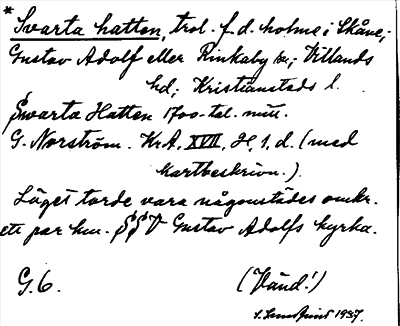 * Svarta hatten, trol. f.d. holme i Skåne;
Gustav Adolf eller Rinkaby sn; Villands
hd; Kristianstads l.
Swarta Hatten 1700-tal. mitt.
G. Norström. Kr.A. XVII, H. 1. d. (med
kartbeskrivn.).
Läget torde vara någonstädes omkr.
ett par km. SSV Gustav Adolfs kyrka.
G. 6. (Vänd!)
1937.